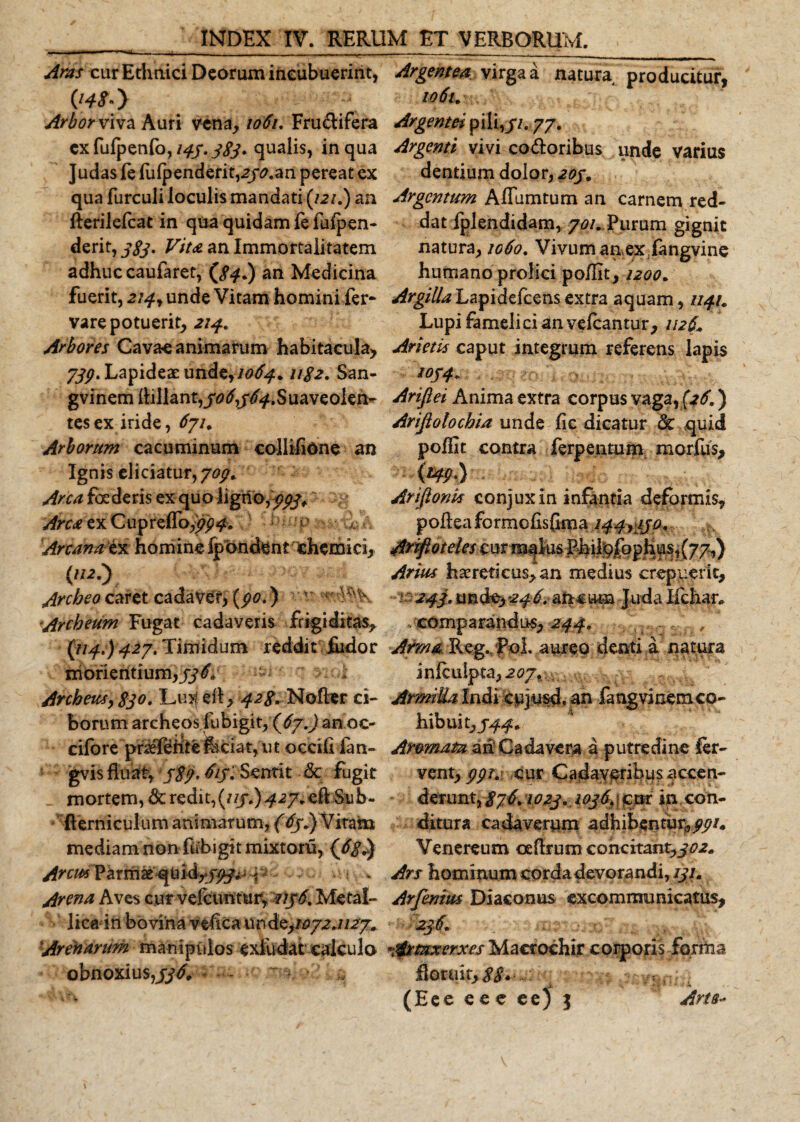 INDEX IV. RERUM ET VERBORUM.
Aras cur Ethnici Deorum incubuerint,
(148.)
Arbor viva Auri vena, 1061. Fructifera
ex suspenso, 145. 383. qualis, in qua
Judas se suspenderit, 250. an pereat ex
qua surculi loculis mandati (121.) an
sterilescat in qua quidam se suspen-
derit, 383. Vitæ an Immortalitatem
adhuc causaret, (84.) an Medicina
fuerit, 214, unde Vitam homini ser-
vare potuerit, 214.
Arbores Cavæ animarum habitacula,
739. Lapideæ unde, 1064. 1182. San-
gvinem stillant, 506, 564. Suaveolen-
tes ex iride, 671.
Arborum cacuminum collisione an
Ignis eliciatur, 709.
Arca fœderis ex quo ligno, 993.
Arcæ ex Cupresso, 994.
Arcana ex homine spondent chemici,
(112.)
Archeo caret cadaver, (90.)
Archeum Fugat cadaveris frigiditas,
(114.) 427. Timidum reddit sudor
morientium, 536.
Archeus, 830. Lux est, 428. Noster ci-
borum archeos subigit, (67.) an oc-
cisore præsente faciat, ut occisi san-
gvis fluat, 589. 615. Sentit & fugit
mortem, & redit, (115.) 427. est Sub-
sterniculum animarum, (65.) Vitam
mediam non subigit mixtorū, (68.)
Arcus Parmæ quid, 593.
Arena Aves cur vescuntur, 1156. Metal-
lica in bovina vesica unde, 1072. 1127.
Arenarum manipulos exsudat calculo
obnoxius, 536.
Argentea virga a natura producitur,
1061.
Argentei pili, 51. 77.
Argenti vivi coctoribus unde varius
dentium dolor, 205.
Argentum Assumtum an carnem red-
dat splendidam, 701. Purum gignit
natura, 1060. Vivum an ex sangvine
humano prolici possit, 1200.
Argilla Lapidescens extra aquam, 1141.
Lupi famelici an vescantur, 1126.
Arietis caput integrum referens lapis
1054.
Aristei Anima extra corpus vaga, (26.)
Aristolochia unde sic dicatur & quid
possit contra serpentum morsus,
(149.)
Aristonis conjux in infantia deformis,
postea formosissima 144, 150.
Aristoteles cur malus Philosophus, (77.)
Arius hæreticus, an medius crepuerit,
243. unde, 246. an cum Juda Ischar.
comparandus, 244.
Arma Reg. Pol. aureo denti a natura
insculpta, 207.
Armilla Indi cujusd. an sangvinem co-
hibuit, 544.
Aromata an Cadavera a putredine ser-
vent, 991. cur Cadaveribus accen-
derunt, 876. 1023. 1036. cur in con-
ditura cadaverum adhibentur, 991.
Venereum œstrum concitant, 302.
Ars hominum corda devorandi, 131.
Arsenius Diaconus excommunicatus,
236.
Artaxerxes Macrochir corporis forma
floruit, 88.
(Eee eee ee) 3 Arte-